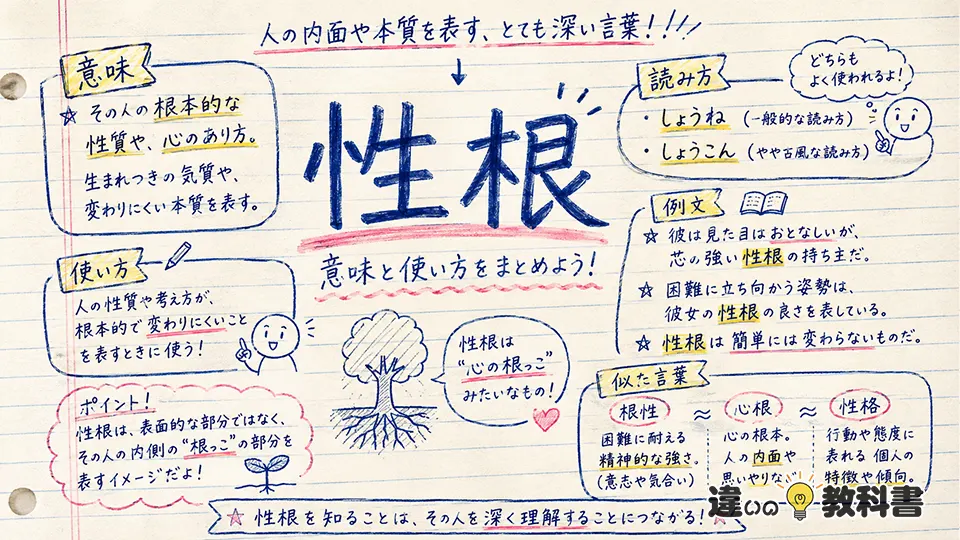 人の内面や本質を表す、とても深い言葉！！！
意味
☆ その人の根本的な
性質や、心のあり方。
生まれつきの気質や、
変わりにくい本質を表す。
性根
意味と使い方をまとめよう！
読み方
・しょうね（一般的な読み方）
・しょうこん（やや古風な読み方）
どちらも
よく使われるよ！
使い方
人の性質や考え方が、
根本的で変わりにくいこと
を表すときに使う！
例文
☆ 彼は見た目はおとなしいが、
芯の強い性根の持ち主だ。
☆ 困難に立ち向かう姿勢は、
彼女の性根の良さを表している。
☆ 性根は簡単には変わらないものだ。
性根は
“心の根っこ”
みたいなもの！
ポイント！
性根は、表面的な部分ではなく、
その人の内側の“根っこ”の部分を
表すイメージだよ！
似た言葉
根性 ≈ 心根 ≈ 性格
困難に耐える
精神的な強さ。
（意志や気合い）
心の根本。
人の内面や
思いやりな
行動や態度に
表れる個人の
特徴や傾向。
☆ 性根を知ることは、その人を深く理解することにつながる！ ☆
違いの教科書